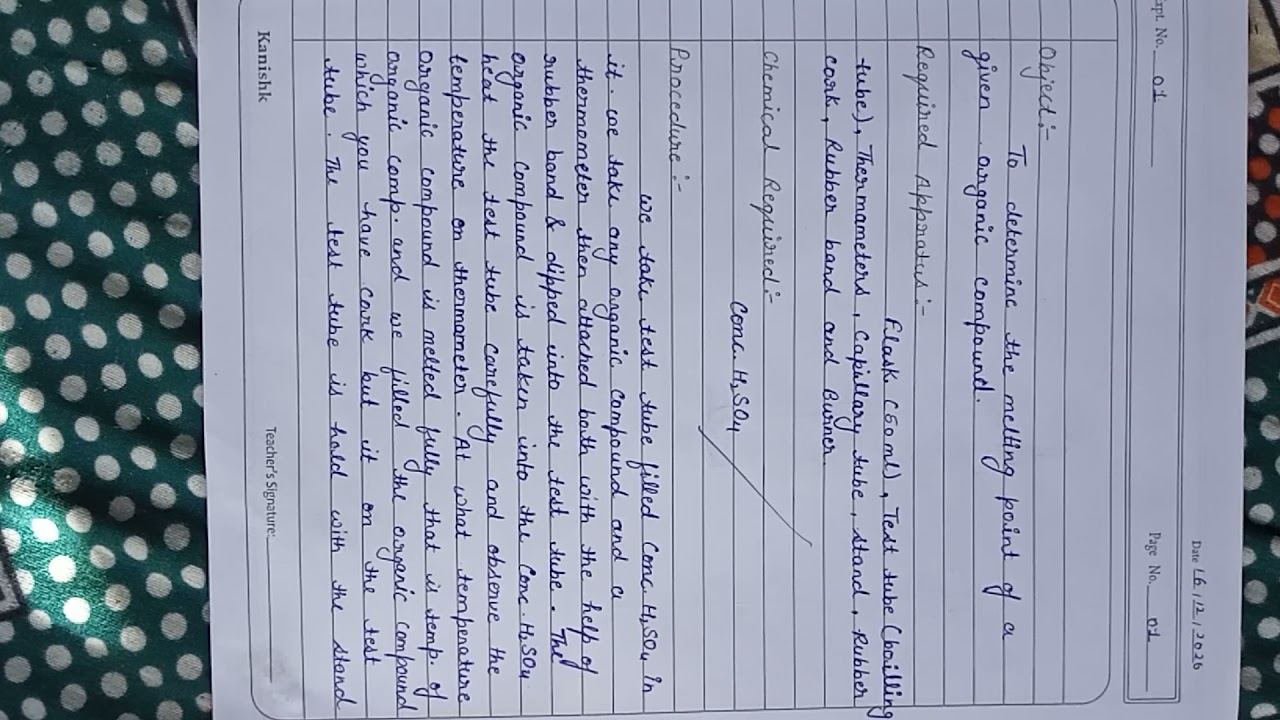 Date 16/2/2026
Expt. No. 01
Page No. 01
Object:-
To determine the melting point of a
given organic compound.
Required Appratus:-
Flask (50ml), Test tube (boilling
tube), Thermometers, Capillary tube, stand, Rubber
cork, Rubber band and Burner.
Chemical Required:-
Conc. H₂SO₄
Procedure:-
we take test tube filled Conc. H₂SO₄ in
it. we take any organic compound and a
thermometer then attached both with the help of
rubber band & dipped into the test tube. The
organic compound is taken into the Conc. H₂SO₄
heat the test tube carefully and observe the
temperature on thermometer. At what temperature
organic compound is melted fully that is temp. of
organic comp. and we filled the organic compound
which you have cork but it on the test
tube. The test tube is hold with the stand
Kanishk
Teacher's Signature: